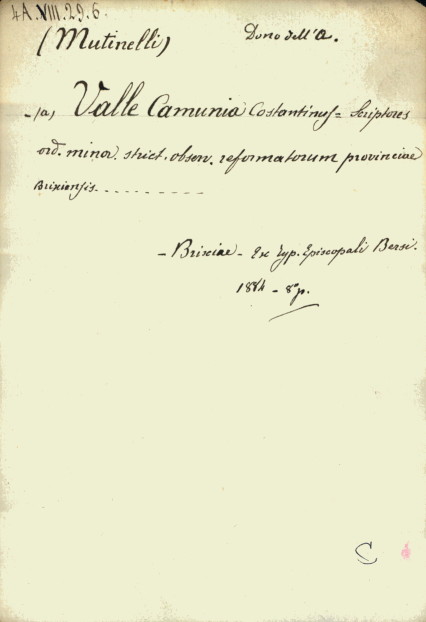 4A.VIII.29.6.
(Mutinelli) Dono dell'A.
-(a) Valle Camunia Costantinus = Scriptores
ord. minor. strict. observ. reformatorum provinciae
Brixiensis
- Brixiae - Ex Typ. Episcopali Bersi.
1884 - 8° p.
C